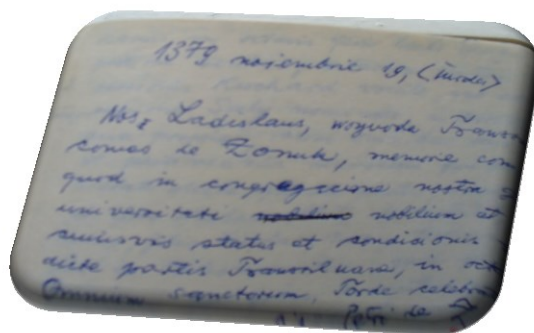 1379 noiembrie 19, (Turda)
Nos, Ladislaus, woyvoda
comes de Zonuk, memorie
quod in congregacione nostra
universitati nobilium et
cuiusvis status et condicionis
dicte partis Transsiluane, in
Omnium Sanctorum, Torde
Petri de